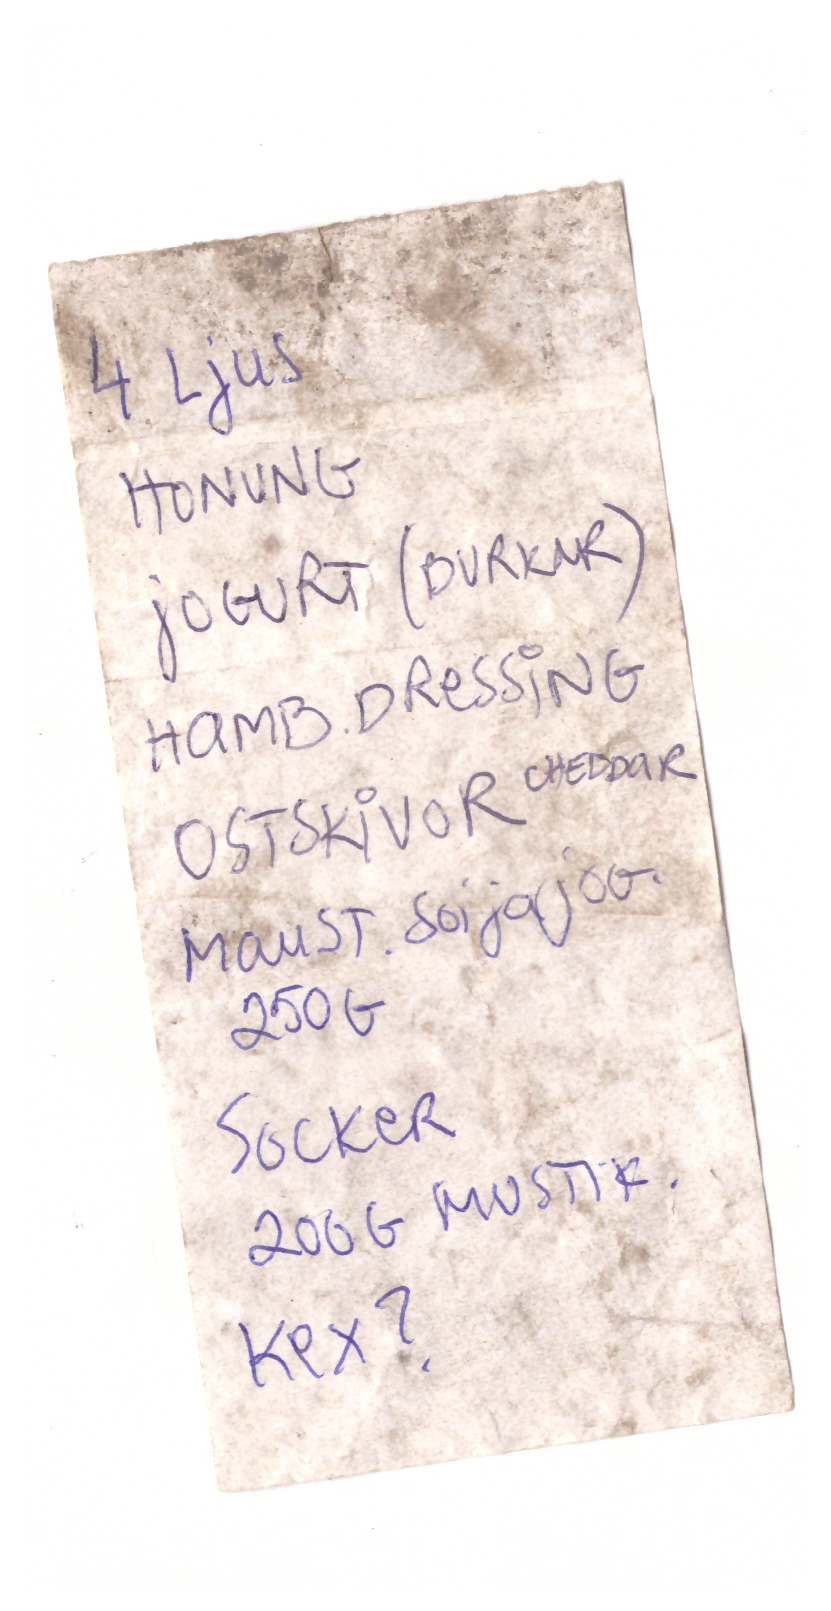 4 Ljus
HONUNG
jOGURT (BURKAR)
HAMB. DRESSING
OSTSKIVOR CHEDDAR
MAUST. Soijajog.
250G
SOCKER
200G MUSTIK.
Kex?